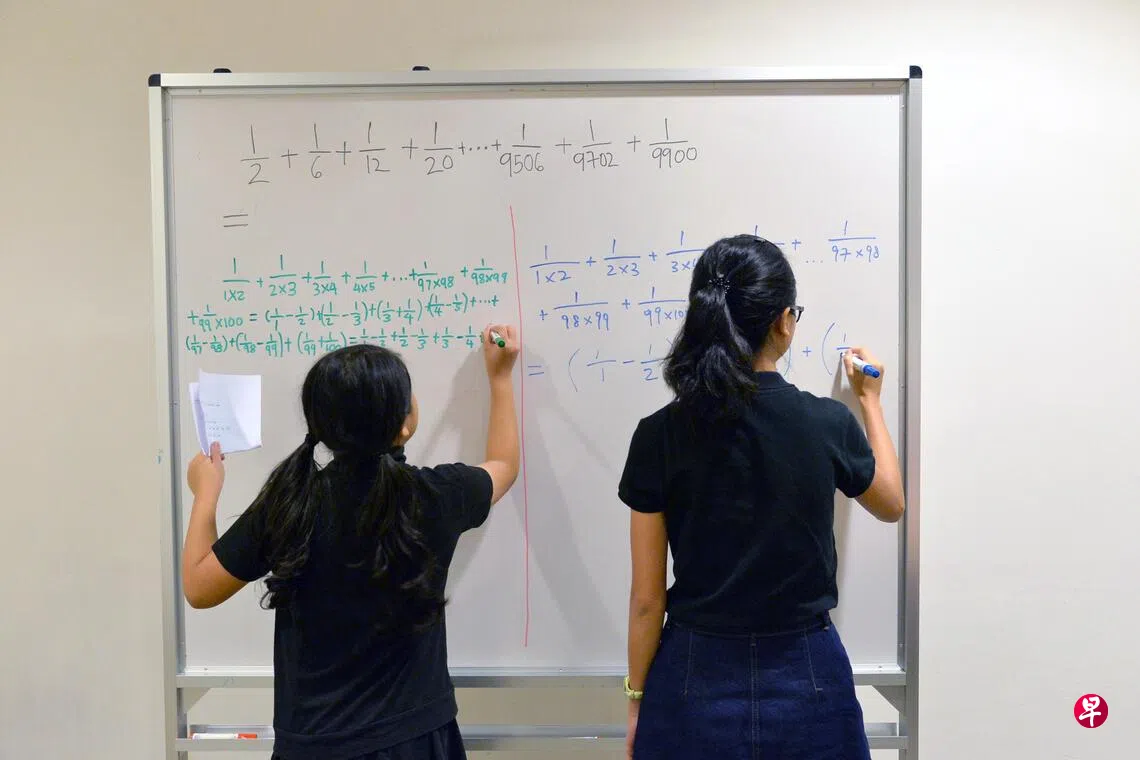 1/2 + 1/6 + 1/12 + 1/20 + ... + 1/9506 + 1/9702 + 1/9900
=
1/1×2 + 1/2×3 + 1/3×4 + 1/4×5 + ... + 1/97×98 + 1/98×99
+ 1/99×100 = (1/1 - 1/2) + (1/2 - 1/3) + (1/3 + 1/4) + (1/4 - 1/5) + ... +
(1/97 - 1/98) + (1/98 - 1/99) + (1/99 + 1/100) = 1/1 - 1/2 + 1/2 - 1/3 + 1/3 - 1/4
1/1×2 + 1/2×3 + 1/3× + ... 1/97×98
+ 1/98×99 + 1/99×10
= (1/1 - 1/2 + (1/
早